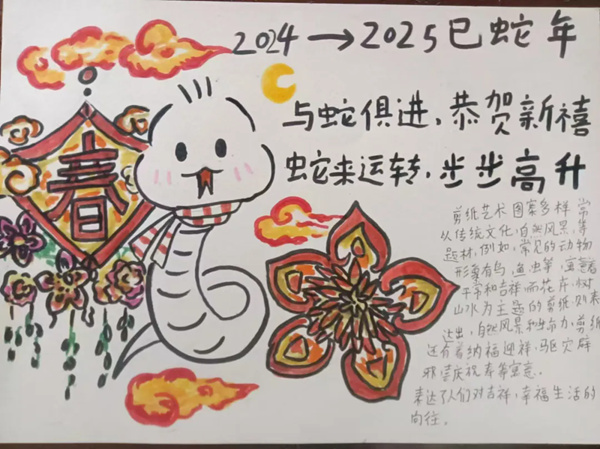 2024→2025巳蛇年
春
与蛇俱进,恭贺新禧
蛇来运转,步步高升
剪纸艺术图案多样,常
从传统文化,自然风景,等
题材,例如,常见的动物
形象有鸟,鱼虫等,寓意着
平常和吉祥,而花卉,树
山水为主题的剪纸则表
达出,自然风景和生命力,剪纸
还有着纳福迎祥,驱灾辟
邪望庆祝寿等寓意。
表达了人们对吉祥,幸福生活的
向往。